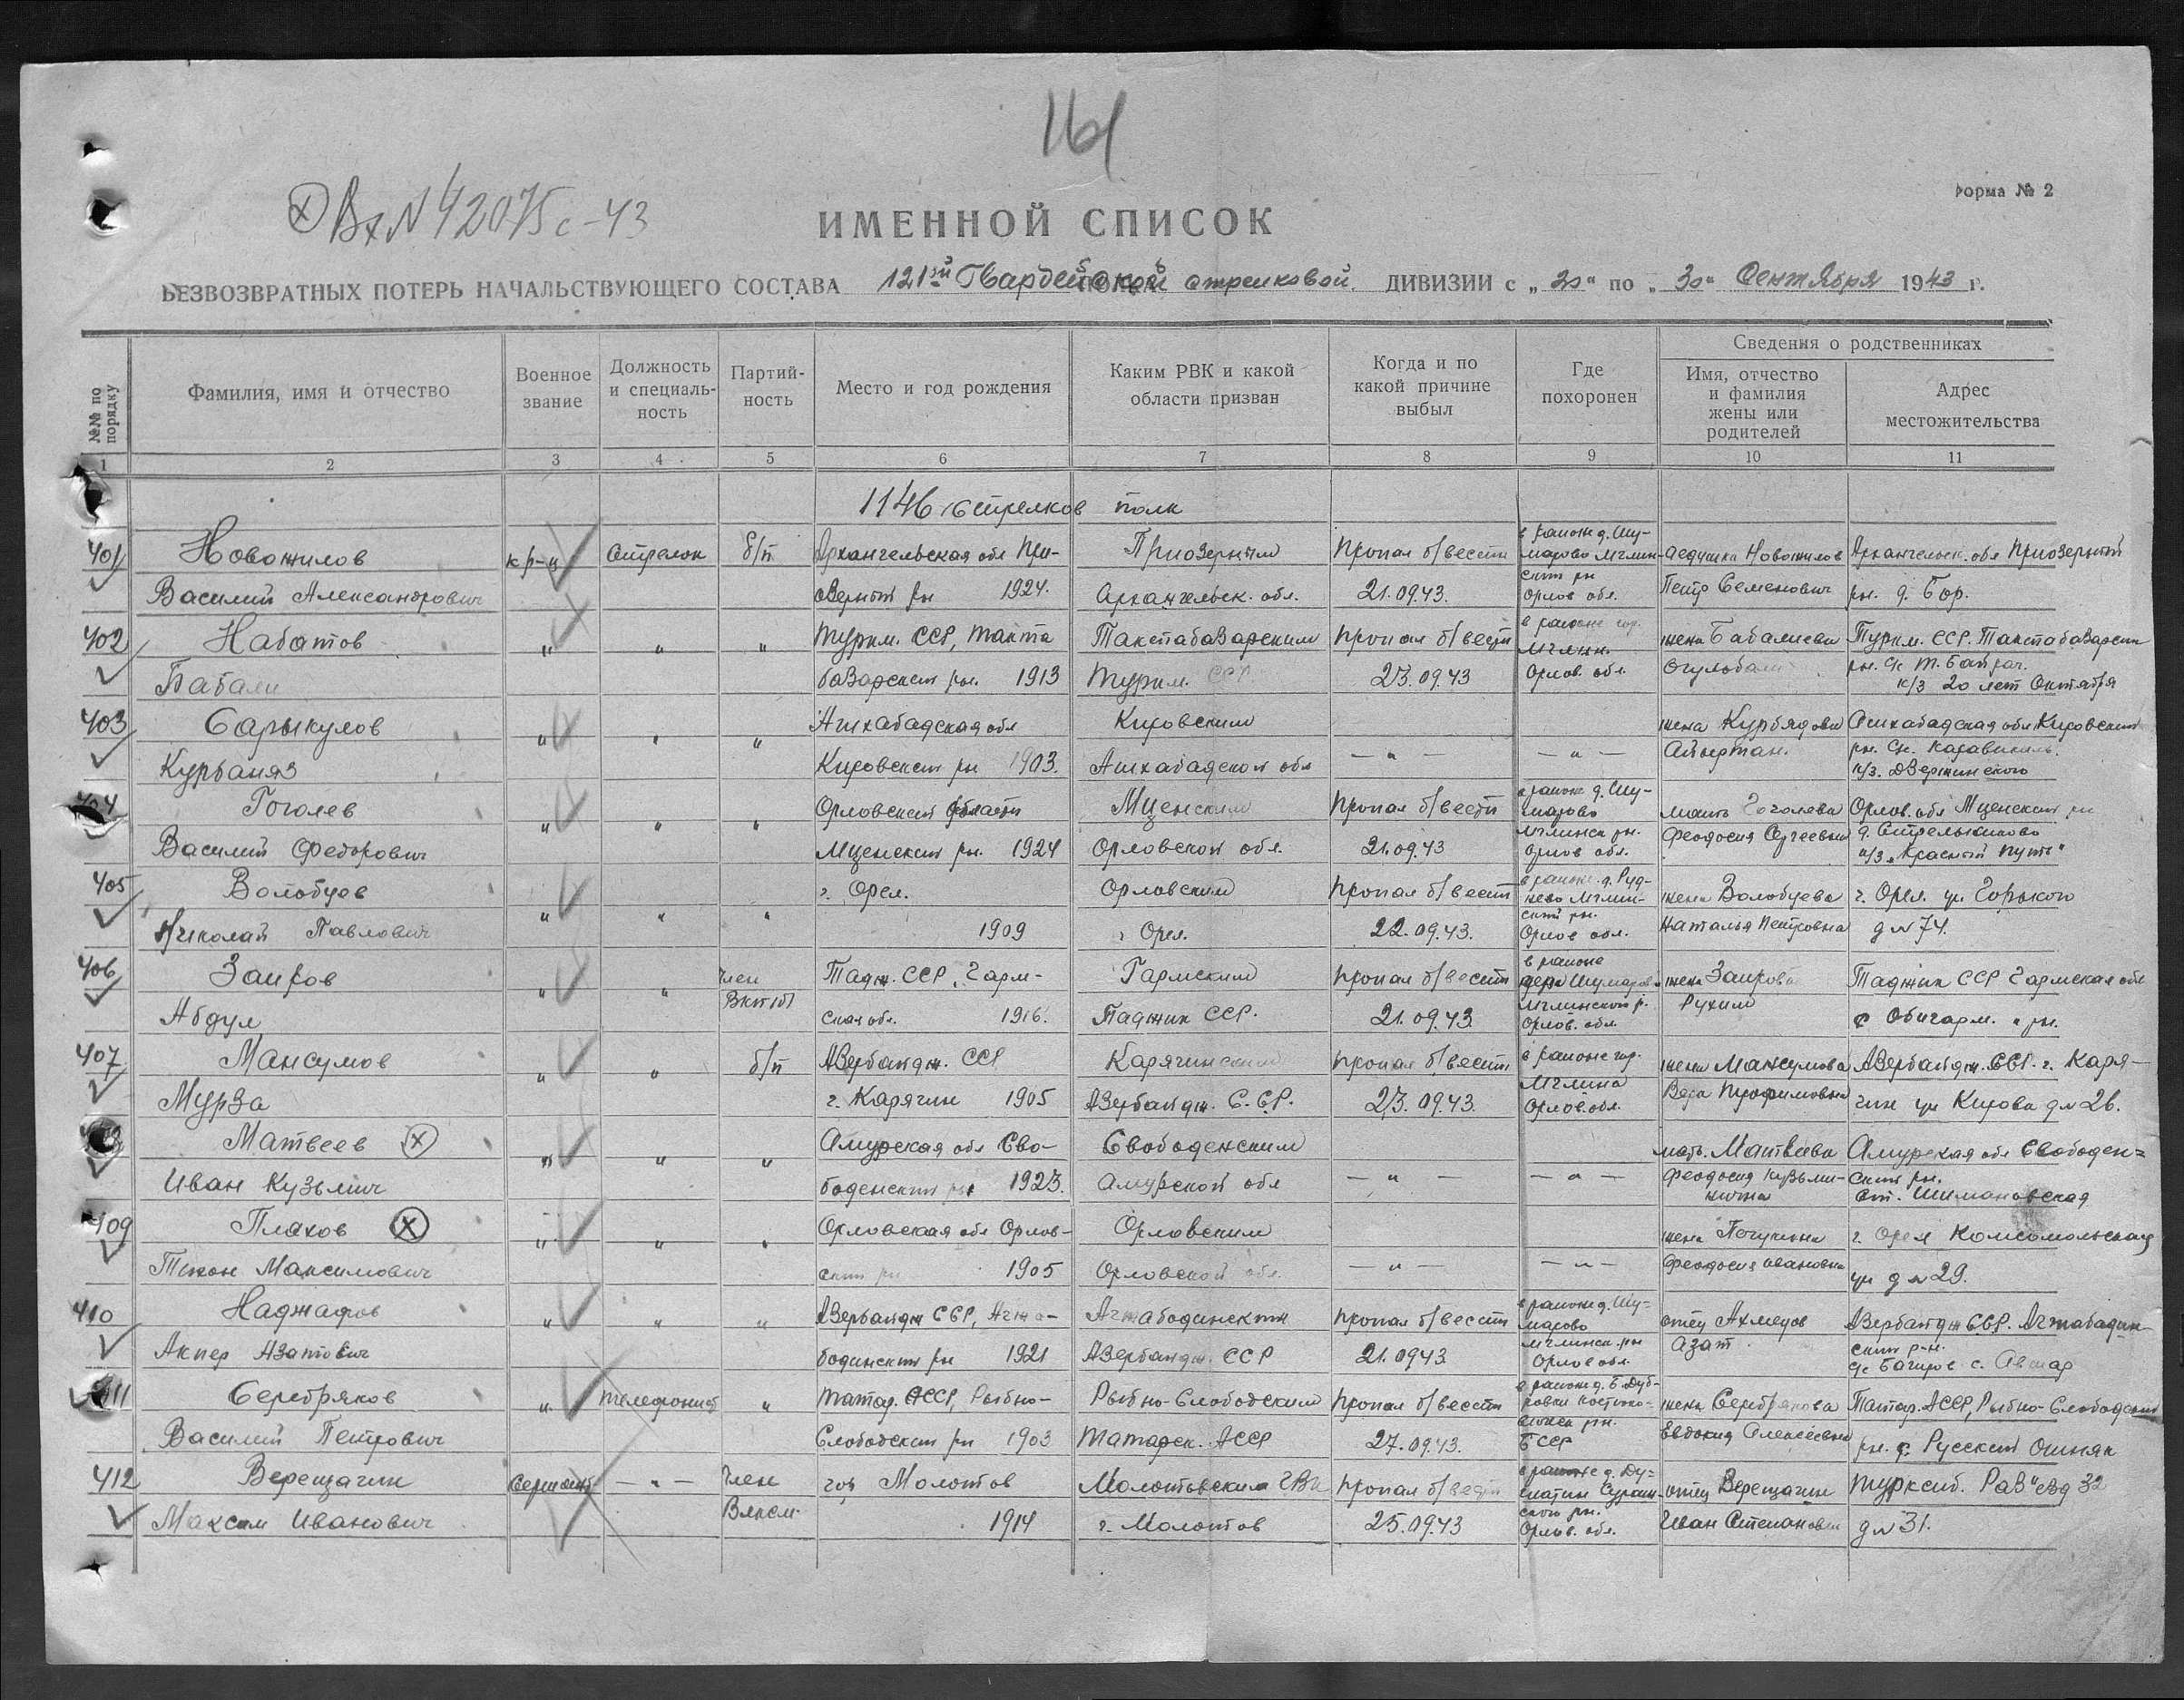 161
Вх N 42075с-43
Форма № 2
ИМЕННОЙ СПИСОК
БЕЗВОЗВРАТНЫХ ПОТЕРЬ НАЧАЛЬСТВУЮЩЕГО СОСТАВА 121ой Гвардейской стрелковой ДИВИЗИИ с „20“ по „30“ Сентября 1943 г.
№№ по порядку
Фамилия, имя и отчество
Военное звание
Должность и специаль-ность
Партий-ность
Место и год рождения
Каким РВК и какой области призван
Когда и по какой причине выбыл
Где похоронен
Сведения о родственниках
Имя, отчество и фамилия жены или родителей
Адрес местожительства
1 2 3 4 5 6 7 8 9 10 11
1146 стрелков полк
401 Новожилов кр-ц Стрелок б/п Архангельская обл При- Приозерным Пропал б/вести в районе д. Шу-марово Мглин- дедушка Новожилов Архангельск. обл Приозерный
Василий Александрович озерный рн 1924. Архангельск. обл. 21.09.43. ский рн Орлов обл. Петр Семенович рн. д. Бор.
402 Набатов „ „ „ Туркм. ССР, Тахта Тахтабазарским Пропал б/вести в районе гор. Мглин жена Бабалиева Туркм. ССР. Тахтабазарский
Бабали базарский рн. 1913 Туркм. ССР 23.09.43 Орлов. обл. рн. к/з 20 лет Октября
403 Сарыкулов „ „ „ Ашхабадская обл Кировским жена Ашхабадская обл Кировский
Курбаняз Кировский рн 1903. Ашхабадской обл — „ — — „ — рн. к/з. Дзержинского
404 Гоголев „ „ „ Орловский области Мценским Пропал б/вести в районе д. Шу-марово мать Гоголева Орлов. обл Мценский рн
Василий Федорович Мценский рн. 1924 Орловской обл. 21.09.43 Мглинск рн. Орлов обл. Феодосия Сергеевна д. Стрельниково к/з „Красный путь“
405 Волобуев „ „ „ г. Орел. Орловским Пропал б/вести в районе д. Руд-нево Мглин- жена Волобуева г. Орел. ул Горького
Николай Павлович 1909 г Орел. 22.09.43. ский рн. Орлов обл. Наталья Петровна д № 74.
406 Заиров „ „ член ВКП(б) Тадж. ССР, Гарм- Гармским Пропал б/вести в районе дерев Шумарово жена Заирова Таджик ССР Гармская обл
Абдул ская обл. 1916. Таджик ССР. 21.09.43. Мглинского р. Орлов. обл. Рухим с Обигарм. „ рн.
407 Мансумов „ „ б/п Азербайдж. ССР Карягинским Пропал б/вести в районе гор. Мглина жена Мансумова Азербайдж. ССР. г. Каря-
Мурза г. Карягин 1905 Азербайдж. С.С.Р. 23.09.43. Орлов. обл. Вера Трофимовна гин ул Кирова д № 26.
408 Матвеев „ „ „ Амурская обл Сво- Свободенским мать. Матвеева Амурская обл Свободен=
Иван Кузьмич боденский рн 1923. Амурской обл — „ — — „ — Феодосия Кузьми-нична ский рн. ст. Шимановская
409 Плахов „ „ „ Орловская обл Орлов- Орловским жена г. Орел Комсомольская
Тихон Максимович ский рн 1905 Орловской обл. — „ — — „ — Феодосия Ивановна ул д № 29.
410 Наджафов „ „ „ Азербайдж ССР, Агжа- Агжабединским Пропал б/вести в районе д. Шу=марово отец Ахмедов Азербайдж ССР. Агжабадин-
Акпер Азатович бодинский рн 1921 Азербайдж. ССР 21.0943 Мглинск. рн Орлов обл. Азат ский р-н.
411 Серебряков „ телефонист „ Татар. АССР, Рыбно- Рыбно-Слободским Пропал б/вести в районе д. Б. Дуб-ровка Костюко- жена Серебрякова Татар. АССР, Рыбно-Слободский
Василий Петрович Слободский рн 1903 Татарск. АССР 27.09.43. рн. БССР Евдокия Алексеевна рн. с. Русский Ошняк
412 Верещагин Сержант — „ — член гор Молотов Молотовским ГВК Пропал б/вести в районе д. Ду=шатин Сураж- отец Верещагин Турксиб. Раз"езд 32
Максим Иванович ВЛКСМ. 1914 г. Молотов 25.09.43 ского рн. Орлов. обл. Иван Степанович д № 31.